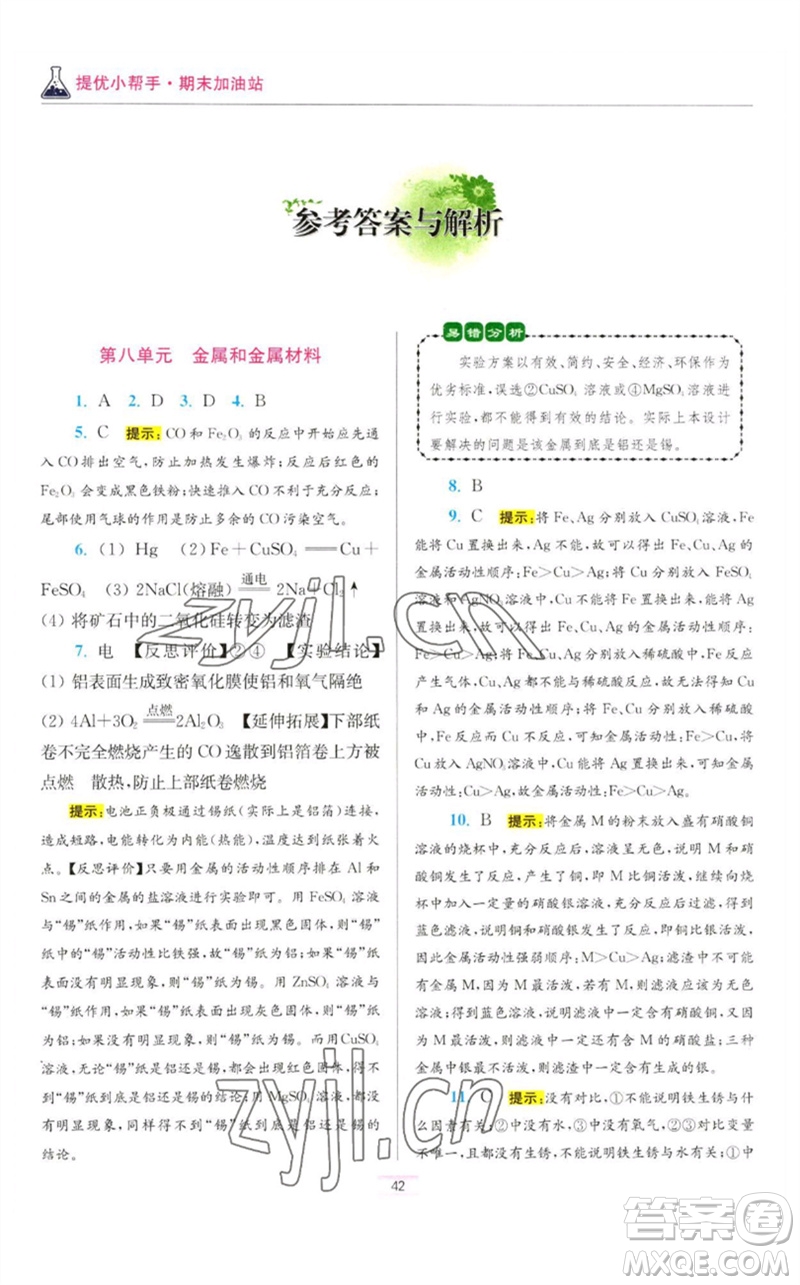 提优小帮手·期末加油站
参考答案与解析
第八单元 金属和金属材料
1. A 2. D 3. D 4. B
5. C 提示:CO和Fe₂O₃的反应中开始应先通
入CO排出空气,防止加热发生爆炸;反应后红色的
Fe₂O₃会变成黑色铁粉;快速推入CO不利于充分反应;
尾部使用气球的作用是防止多余的CO污染空气。
6. (1) Hg (2) Fe+CuSO₄══Cu+
FeSO₄ (3) 2NaCl(熔融)══通电══2Na+Cl₂↑
(4) 将矿石中的二氧化硅转变为滤渣
7. 电 【反思评价】②④ 【实验结论】
(1) 铝表面生成致密氧化膜使铝和氧气隔绝
(2) 4Al+3O₂══点燃══2Al₂O₃ 【延伸拓展】下部纸
卷不完全燃烧产生的CO逸散到铝箔卷上方被
点燃 散热,防止上部纸卷燃烧
提示:电池正负极通过锡纸(实际上是铝箔)连接,
造成短路,电能转化为内能(热能),温度达到纸张着火
点。【反思评价】只要用金属的活动性顺序排在Al和
Sn之间的金属的盐溶液进行实验即可。用FeSO₄溶液
与“锡”纸作用,如果“锡”纸表面出现黑色固体,则“锡”
纸中“锡”活动性比铁强,故“锡”纸为铝;如果“锡”纸表
面没有明显现象,则“锡”纸为锡。用ZnSO₄溶液与
“锡”纸作用,如果“锡”纸表面出现灰色固体,则“锡”纸
为铝;如果没有明显现象,则“锡”纸为锡。而用CuSO₄
溶液,无论“锡”纸是铝还是锡,“锡”纸表面都会析出红
色固体,不能得到“锡”纸是铝还是锡的结论;用MgSO₄
溶液,同样得不出“锡”纸到底是铝还是锡的
结论。
易错分析
实验方案以有效、简约、安全、经济、环保作为
优劣标准,误选②CuSO₄溶液或④MgSO₄溶液进
行实验,都不能得到有效的结论。实际上本设计
要解决的问题是该金属到底是铝还是锡。
8. B
9. C 提示:将Fe、Ag分别放入CuSO₄溶液,Fe
能将Cu置换出来,Ag不能,故可以得出Fe、Cu、Ag的
金属活动性顺序:Fe>Cu>Ag;将Cu分别放入FeSO₄
溶液和AgNO₃溶液中,不能将Fe置换出来,能将Ag置
换出来,故可以得出Fe、Cu、Ag的金属活动性顺序:
Fe>Cu>Ag;将Fe、Cu、Ag分别放入稀硫酸中,Fe可以
产生气体,Cu、Ag都不能与稀硫酸反应,故不能得出
Fe、Cu、Ag的金属活动性顺序;将Fe、Cu放入稀硫酸
中,Fe可以产生气体,Cu不能,故活动性:Fe>Cu,将Cu
放入AgNO₃溶液中,可以将Ag置换出来,故可以得出
Fe、Cu、Ag的金属活动性顺序:Fe>Cu>Ag。
10. B 提示:将金属M的粉末放入盛有硝酸铜
溶液的烧杯中,充分反应后,溶液呈无色,说明M和
硝酸铜发生反应,产生了铜,即M比铜活泼,继续向烧
杯中加入一定量的硝酸银溶液,充分反应后过滤,得到
蓝色滤液,说明铜和硝酸银发生了反应,即铜比银活泼,
则三种金属活动性强弱顺序:M>Cu>Ag;滤渣中不可
能有金属M,若有金属M,则滤液应为无色,不会出现
蓝色;滤液呈蓝色,说明滤液中一定含有硝酸铜,又因为
M比铜活泼,则滤液中一定还含有金属M的硝酸盐;三种
金属中银最不活泼,则滤渣中一定含有生成的银。
11. C 提示:没有对力,①不能说明铁生锈与什
么因素有关;②中没有水,③中没有氧气,②③变量不
唯一,不能说明铁生锈与水有关,也不能说明铁生锈与
氧气有关;①②中变量是水,能说明铁生锈与水有关;①中
42
zyjl.cn
zyjl.cn
答案卷
MXQE.COM